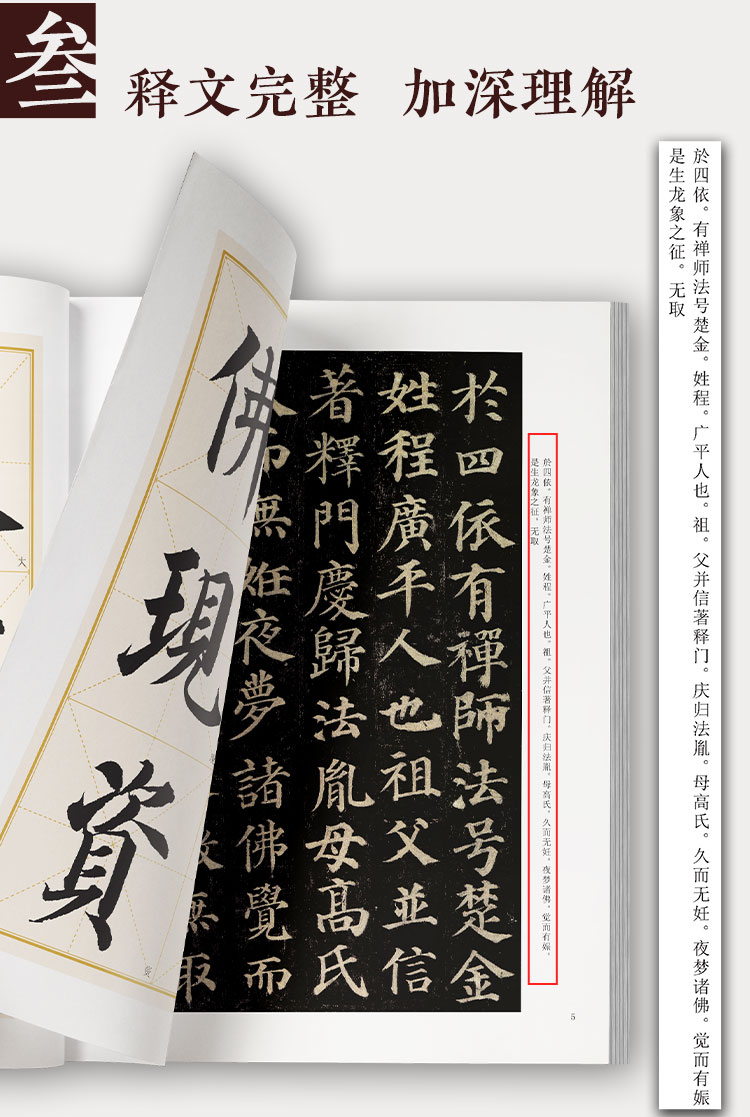 叁
释文完整 加深理解
於四依。有禅师法号楚金。姓程。广平人也。祖。父并信著释门。庆归法胤。母高氏。久而无妊。夜梦诸佛。觉而有娠
是生龙象之征。无取
於四依有禪師法号楚金
姓程廣平人也祖父並信
著釋門慶歸法胤母高氏
而無妊夜夢諸佛覺而
無取
於四依。有禅师法号楚金。姓程。广平人也。祖。父并信著释门。庆归法胤。母高氏。久而无妊。夜梦诸佛。觉而有娠。
是生龙象之征。无取
5
佛
現
資
资
大